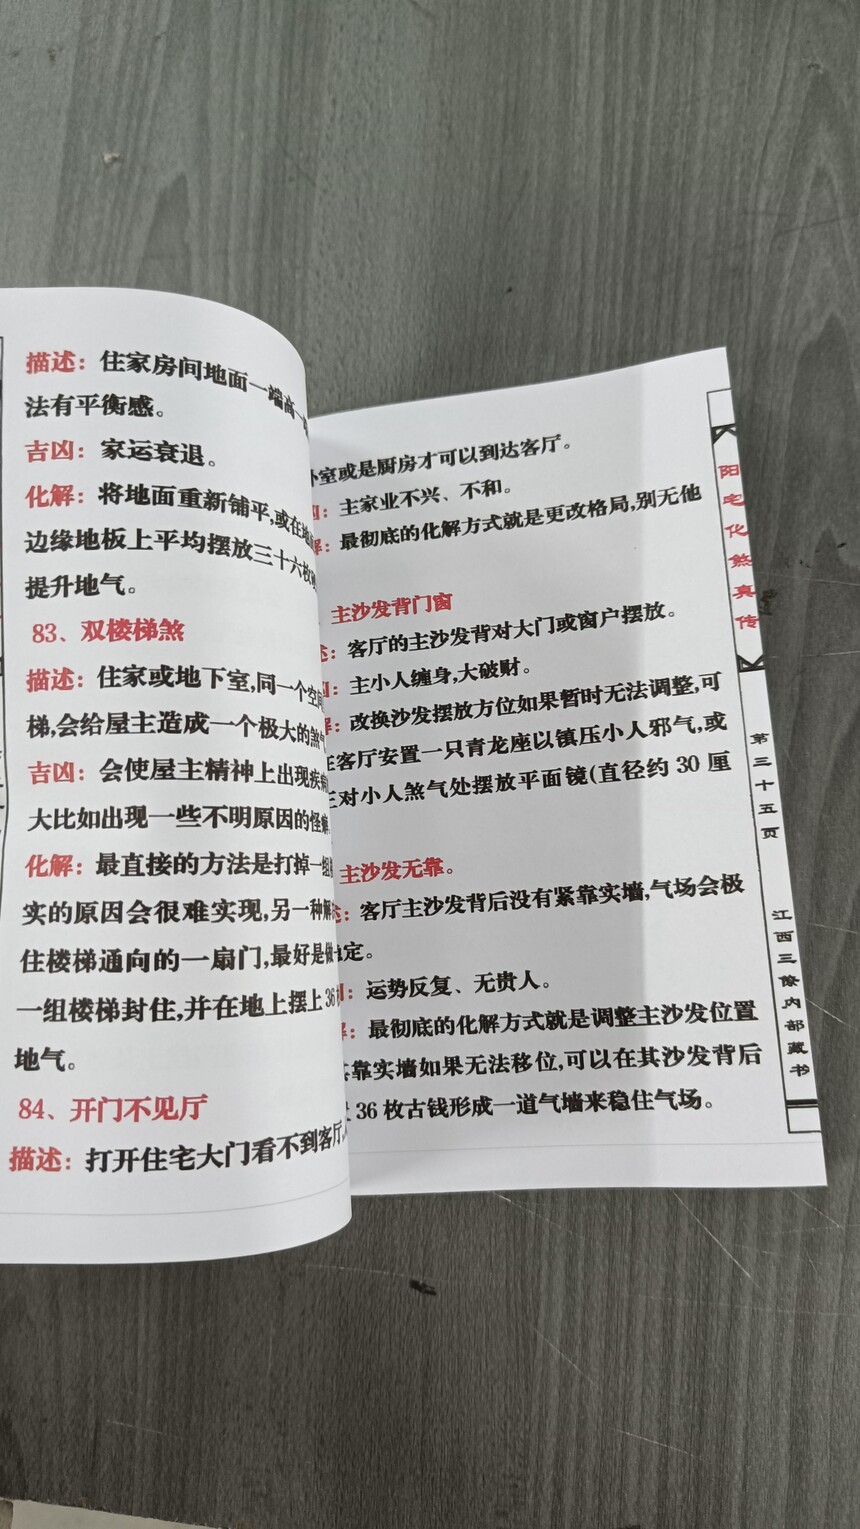 描述：住家房间地面一端高一
法有平衡感。
吉凶：家运衰退。
化解：将地面重新铺平,或在地
边缘地板上平均摆放三十六枚
提升地气。
83、双楼梯煞
描述：住家或地下室,同一个空间
梯,会给屋主造成一个极大的煞气
吉凶：会使屋主精神上出现疾病
大比如出现一些不明原因的怪
化解：最直接的方法是打掉一组
实的原因会很难实现,另一种解
住楼梯通向的一扇门,最好是做
一组楼梯封住,并在地上摆上36
地气。
84、开门不见厅
描述：打开住宅大门看不到客厅
室或是厨房才可以到达客厅。
：主家业不兴、不和。
：最彻底的化解方式就是更改格局,别无他
主沙发背门窗
：客厅的主沙发背对大门或窗户摆放。
：主小人缠身,大破财。
：改换沙发摆放方位如果暂时无法调整,可
在客厅安置一只青龙座以镇压小人邪气,或
对小人煞气处摆放平面镜(直径约 30 厘
主沙发无靠。
：客厅主沙发背后没有紧靠实墙,气场会极
定。
：运势反复、无贵人。
：最彻底的化解方式就是调整主沙发位置
靠实墙如果无法移位,可以在其沙发背后
36 枚古钱形成一道气墙来稳住气场。
阳宅化煞真传
第三十五页
江西三僚内部藏书